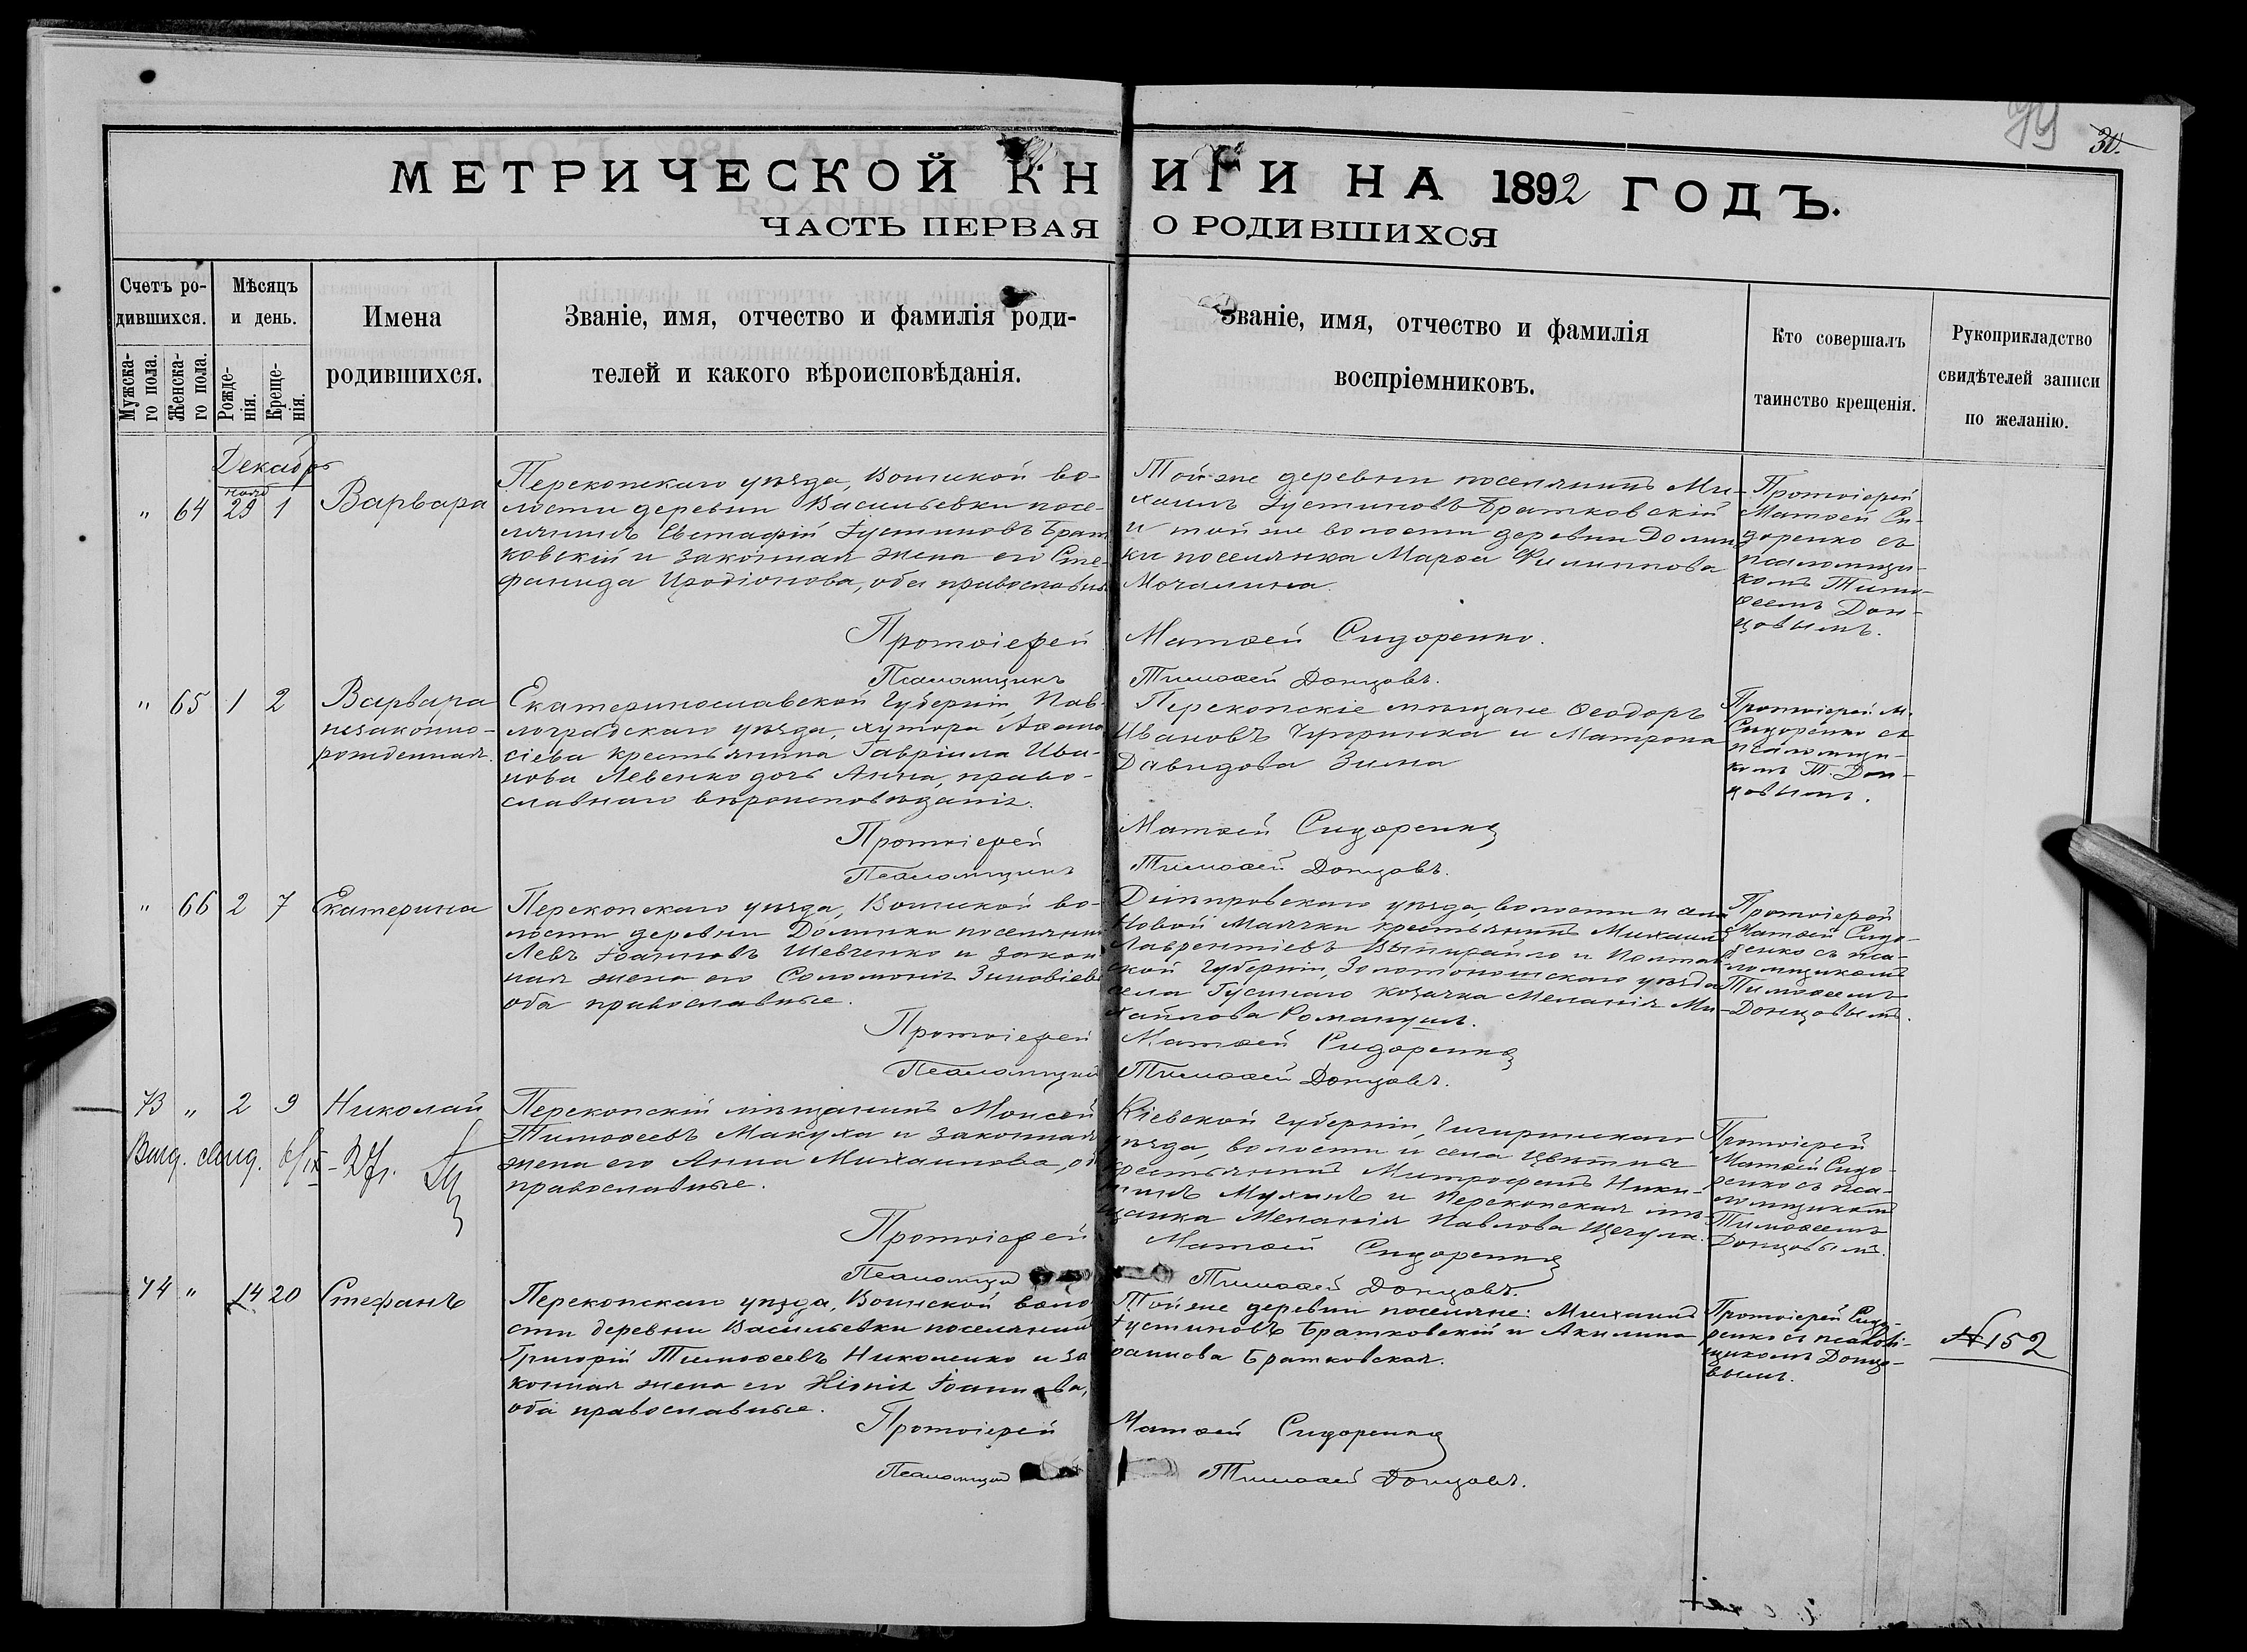 30.
МЕТРИЧЕСКОЙ КНИГИ НА 1892 ГОДЪ.
ЧАСТЬ ПЕРВАЯ О РОДИВШИХСЯ
Счетъ ро-
дившихся.
Мужска-
го пола.
Женска-
го пола.
Мѣсяцъ
и день.
Рожде-
нія.
Креще-
нія.
Имена
родившихся.
Званіе, имя, отчество и фамилія роди-
телей и какого вѣроисповѣданія.
Званіе, имя, отчество и фамилія
воспріемниковъ.
Кто совершалъ
таинство крещенія.
Рукоприкладство
свидѣтелей записи
по желанію.
Декабрь
нояб
" 64 29 1
Варвара
Перекопскаго уѣзда, Воинской во-
лости деревни Васильевки посе-
лянинъ Евстафій Іустиновъ Брат
ковскій и законная жена его Сте-
фанида Иродіонова, оба православные
Той же деревни поселянинъ Ми-
хаилъ Іустиновъ Братковскій
и той же волости деревни Долин
ки поселянка Марѳа Филиппова
Мочалина.
Протоіерей
Матѳей Си-
доренко съ
псаломщи-
комъ Тимо-
ѳеемъ Дон-
цовымъ.
Протоіерей Матѳей Сидоренко.
Псаломщикъ Тимоѳей Донцовъ.
" 65 1 2
Варвара
незаконно-
рожденная.
Екатеринославской Губерніи, Пав-
лоградскаго уѣзда, хутора Аѳана
сіева крестьянина Гавріила Ива-
нова Левенко дочь Анна, право-
славнаго вѣроисповѣданія.
Перекопскіе мѣщане Ѳеодоръ
Ивановъ Чупринка и Матрона
Давидова Зима
Протоіерей М.
Сидоренко съ
псаломщи-
комъ Т. Дон-
цовымъ.
Протоіерей Матѳей Сидоренко
Псаломщикъ Тимоѳей Донцовъ.
" 66 2 7
Екатерина
Перекопскаго уѣзда, Воинской во-
лости деревни Долинки поселянинъ
Левъ Іоанновъ Шевченко и закон
ная жена его Соломонія Зиновіева
оба православные.
Днѣпровскаго уѣзда, волости и села
Новой Маячки крестьянинъ Михаилъ
Лаврентіевъ и Полтав
ской Губерніи, Золотоношскаго уѣзда
села Гусинаго козачка Меланія Ми-
хайлова Романуша.
Протоіерей
Матѳей Сидо-
ренко съ пса-
ломщикомъ
Тимоѳеемъ
Донцовымъ.
Протоіерей Матѳей Сидоренко
Псаломщикъ Тимоѳей Донцовъ.
73 " 2 9
Николай
Перекопскій мѣщанинъ Моисей
Тимоѳеевъ Макуха и законная
жена его Анна Михаилова, оба
православные.
Кіевской Губерніи, Чигиринскаго
уѣзда, волости и села Цвѣтны
крестьянинъ Митрофанъ Ники-
тинъ Мухинъ и Перекопская мѣ-
щанка Меланія Павлова Щегула.
Протоіерей
Матѳей Сидо-
ренко съ пса-
ломщикомъ
Тимоѳеемъ
Донцовымъ.
Протоіерей Матѳей Сидоренко
Псаломщи Тимоѳей Донцовъ.
74 " 14 20
Стефанъ
Перекопскаго уѣзда, Воинской воло
сти деревни Васильевки поселянинъ
Григорій Тимоѳеевъ Николенко и за
конная жена его Хіонія Іоаннова,
оба православные.
Той же деревни поселяне: Михаилъ
Іустиновъ Братковскій и Акилина
Іоаннова Братковская.
Протоіерей Сидо-
ренко съ псалом-
щикомъ Донцо-
вымъ.
№152
Протоіерей Матѳей Сидоренко
Псаломщи Тимоѳей Донцовъ.